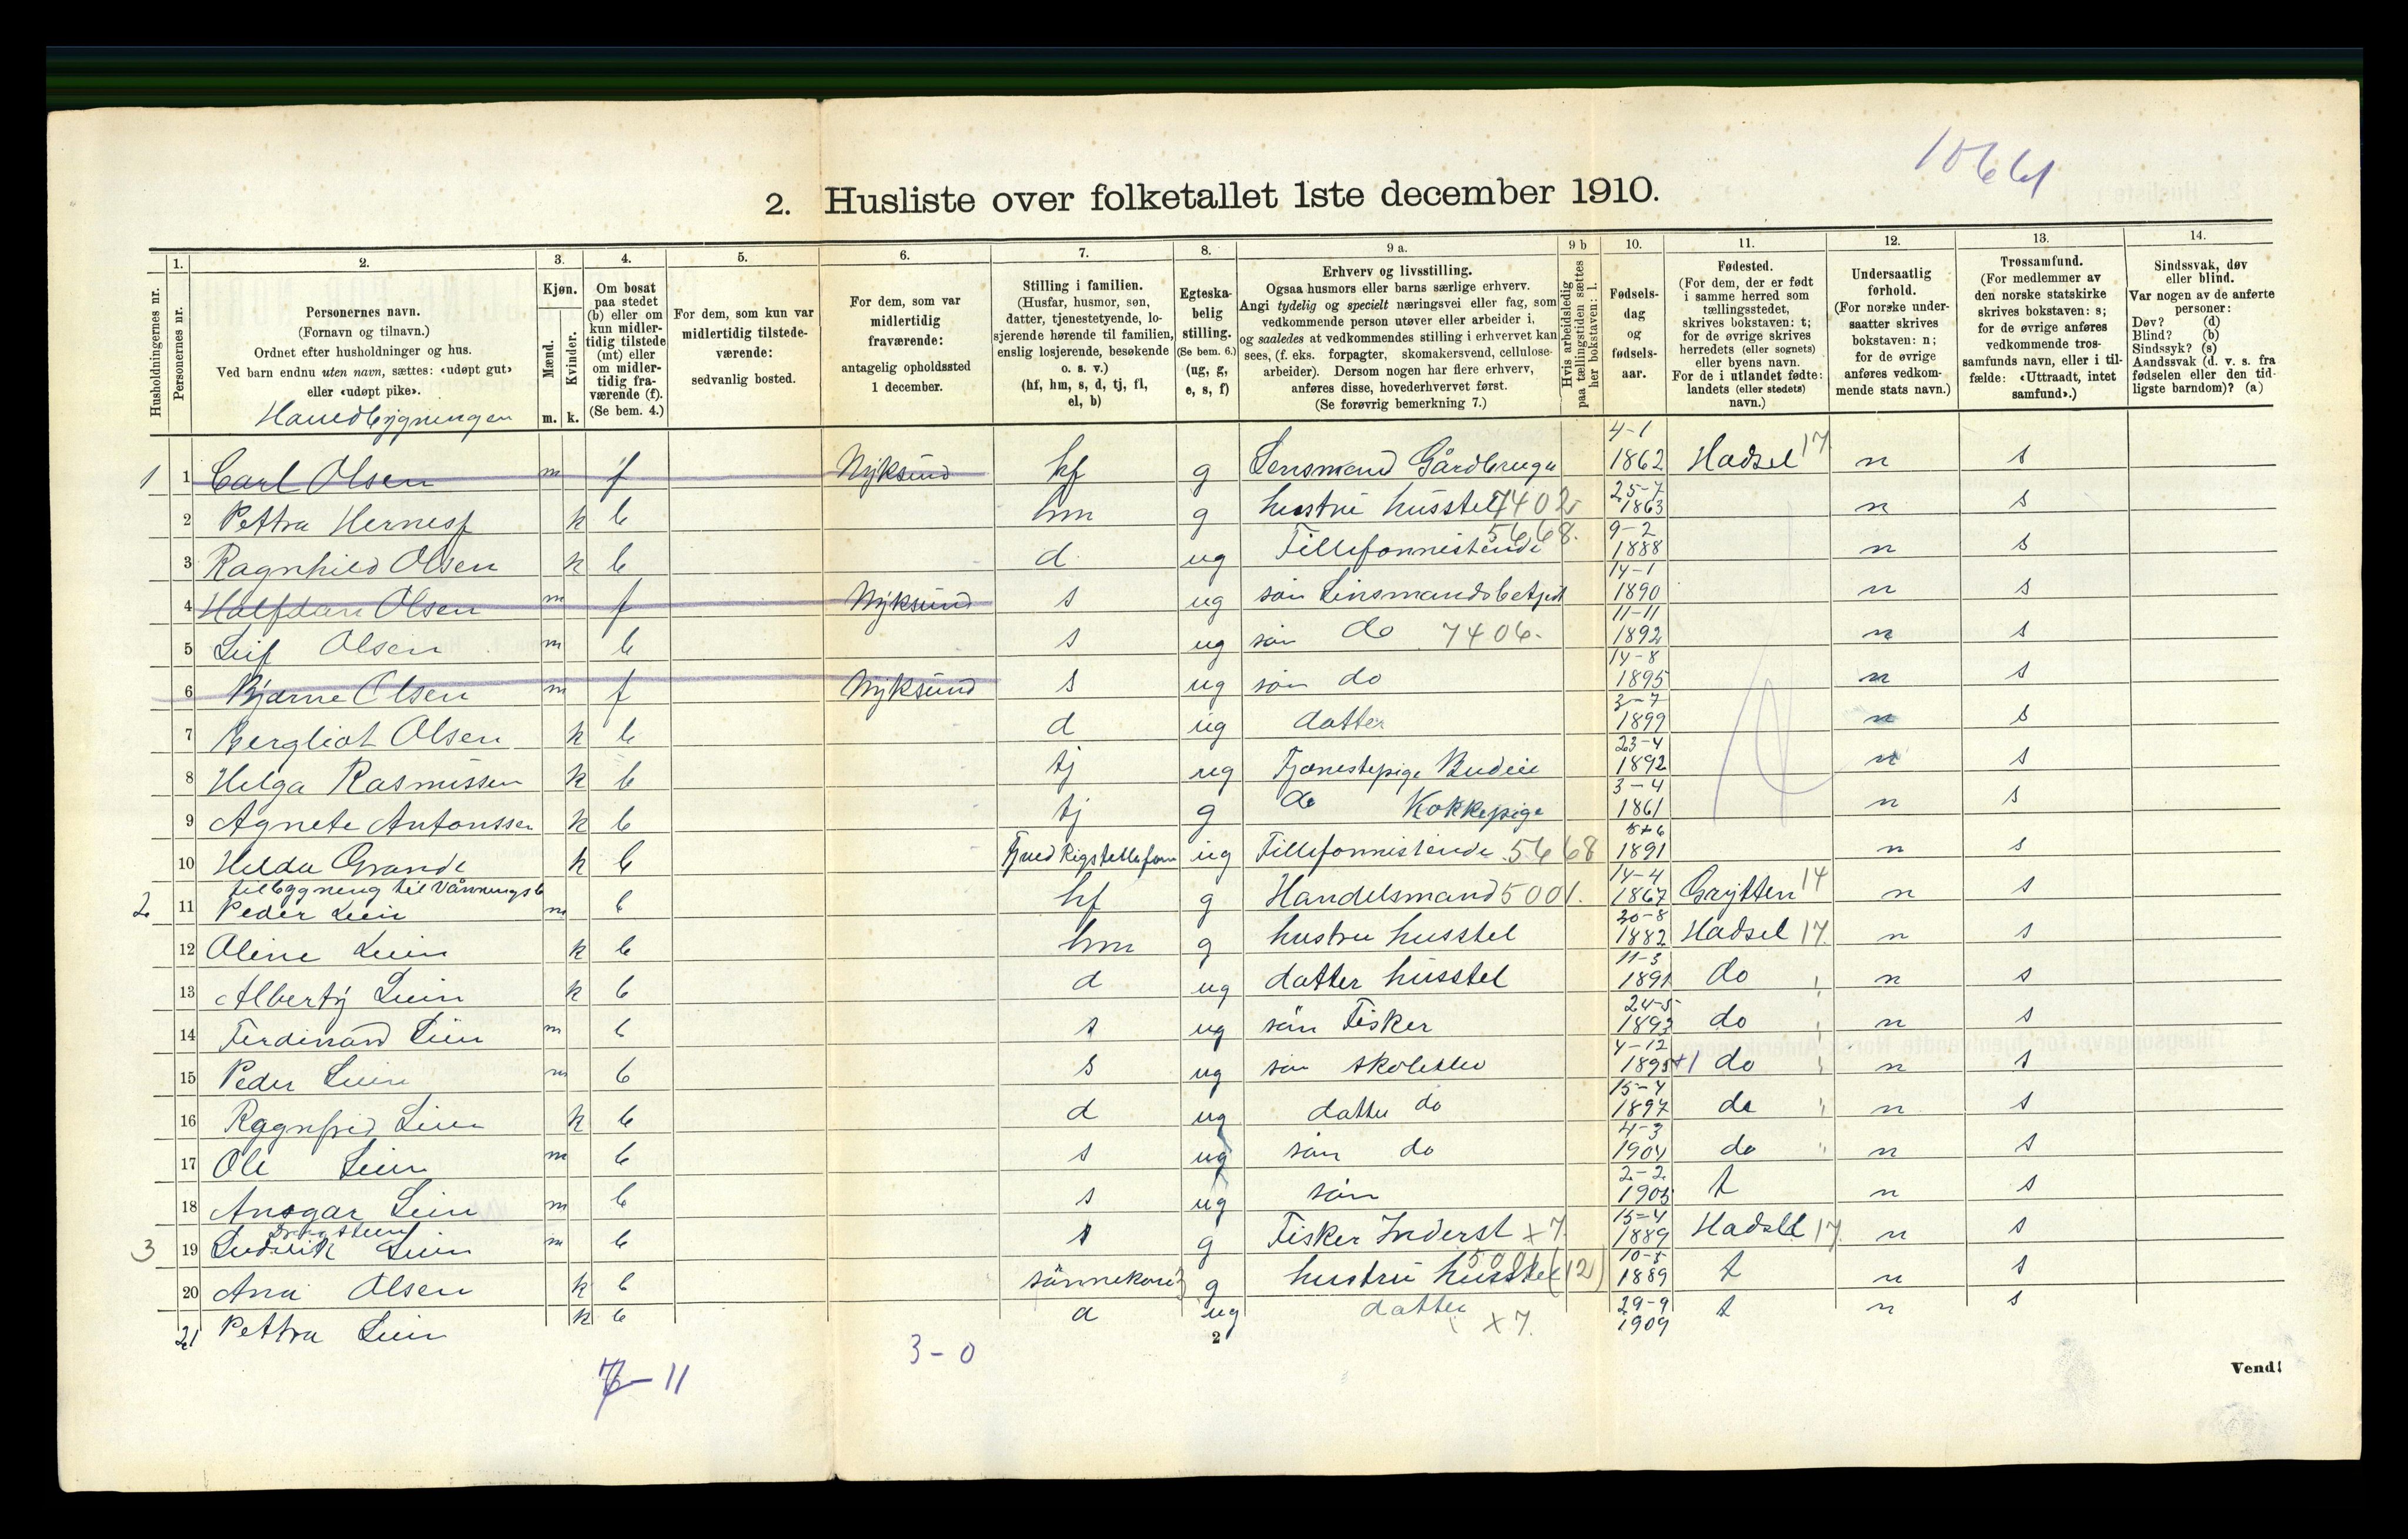 10661
2. Husliste over folketallet 1ste december 1910.
Husholdningernes nr.
1. Personernes nr.
2. Personernes navn.
(Fornavn og tilnavn.)
Ordnet efter husholdninger og hus.
Ved barn endnu uten navn, sættes: «udøpt gut»
eller «udøpt pike».
Hovedbygningen
3. Kjøn.
Mænd. Kvinder.
m. k.
4. Om bosat
paa stedet
(b) eller om
kun midler-
tidig tilstede
(mt) eller
om midler-
tidig fra-
værende (f).
(Se bem. 4.)
5. For dem, som kun var
midlertidig tilstede-
værende:
sedvanlig bosted.
6. For dem, som var
midlertidig
fraværende:
antagelig opholdssted
1 december.
7. Stilling i familien.
(Husfar, husmor, søn,
datter, tjenestetyende, lo-
sjerende hørende til familien,
enslig losjerende, besøkende
o. s. v.)
(hf, hm, s, d, tj, fl,
el, b)
8. Egteska-
belig
stilling.
(Se bem. 6.)
(ug, g,
e, s, f)
9 a. Erhverv og livsstilling.
Ogsaa husmors eller barns særlige erhverv.
Angi tydelig og specielt næringsvei eller fag, som
vedkommende person utøver eller arbeider i,
og saaledes at vedkommendes stilling i erhvervet kan
sees, (f. eks. forpagter, skomakersvend, cellulose-
arbeider). Dersom nogen har flere erhverv,
anføres disse, hovederhvervet først.
(Se forøvrig bemerkning 7.)
9 b Hvis arbeidsledig
paa tællingstiden sættes
her bokstaven: l.
10. Fødsels-
dag
og
fødsels-
aar.
11. Fødested.
(For dem, der er født
i samme herred som
tællingsstedet,
skrives bokstaven: t;
for de øvrige skrives
herredets (eller sognets)
eller byens navn.
For de i utlandet fødte:
landets (eller stedets)
navn.)
12. Undersaatlig
forhold.
(For norske under-
saatter skrives
bokstaven: n;
for de øvrige
anføres vedkom-
mende stats navn.)
13. Trossamfund.
(For medlemmer av
den norske statskirke
skrives bokstaven: s;
for de øvrige anføres
vedkommende tros-
samfunds navn, eller i til-
fælde: «Uttraadt, intet
samfund».)
14. Sindssvak, døv
eller blind.
Var nogen av de anførte
personer:
Døv? (d)
Blind? (b)
Sindssyk? (s)
Aandssvak (d. v. s. fra
fødselen eller den tid-
ligste barndom)? (a)
1 1 Carl Olsen m f Nyksund hf g Lensmand Gårdbruger 4-1 1862 Hadsel 17 n s
2 Pettra Hernesf k b hm g hustrü hüsstel 7402 25-7 1863 n s
3 Ragnhild Olsen k b d ug Tillefonnistinde 5668. 9-2 1888 n s
4 Halfdan Olsen m f Nyksund s ug sön 14-1 1890 n s
5 Leif Olsen m b s ug sön do 7406. 11-11 1892 n s
6 Bjarne Olsen m f Nyksünd s ug sön do 14-8 1895 n s
7 Bergliot Olsen k b d ug datter 3-7 1899 n s
8 Helga Rasmüssen k b tj ug Tjenestepige Budeie 23-4 1892 n s
9 Agnete Antonssen k b tj g do Kokkepige 3-4 1861 n s
10 Helda Grande k b ug Tillefonnistinde 5668 1891 n s
2 11 Peder Lein m b hf g Handelsmand 5001. 14-4 1867 Grytten 14 n s
12 Oline Lein k b hm g hustru husstel 20-8 1882 Hadsel 17. n s
13 Alberty Lein k b d ug datter hüsstel 11-3 1891 do n s
14 Ferdinand Lein m b s ug sön Fisker 24-5 1893 do n s
15 Peder Lein m b s ug sön 4-12 1895 +1 do n s
16 Ragnfrid Lein k b d ug datter do 15-4 1897 do n s
17 Ole Lein m b s ug sön do 4-3 1904 do n s
18 Ansgar Lein m b s ug sön 2-2 1905 t n s
3 19 Ludvik Lein m b s g Fisker Inderst x7. 15-4 1889 Hadsel 17. n s
20 Ana Olsen k b sönnekone g hustrü husstel 5001 (12) 10-5 1889 t n s
21 Pettra Lein k b d ug datter x7. 29-9 1909 t n s
2
7-11
3-0
Vend!